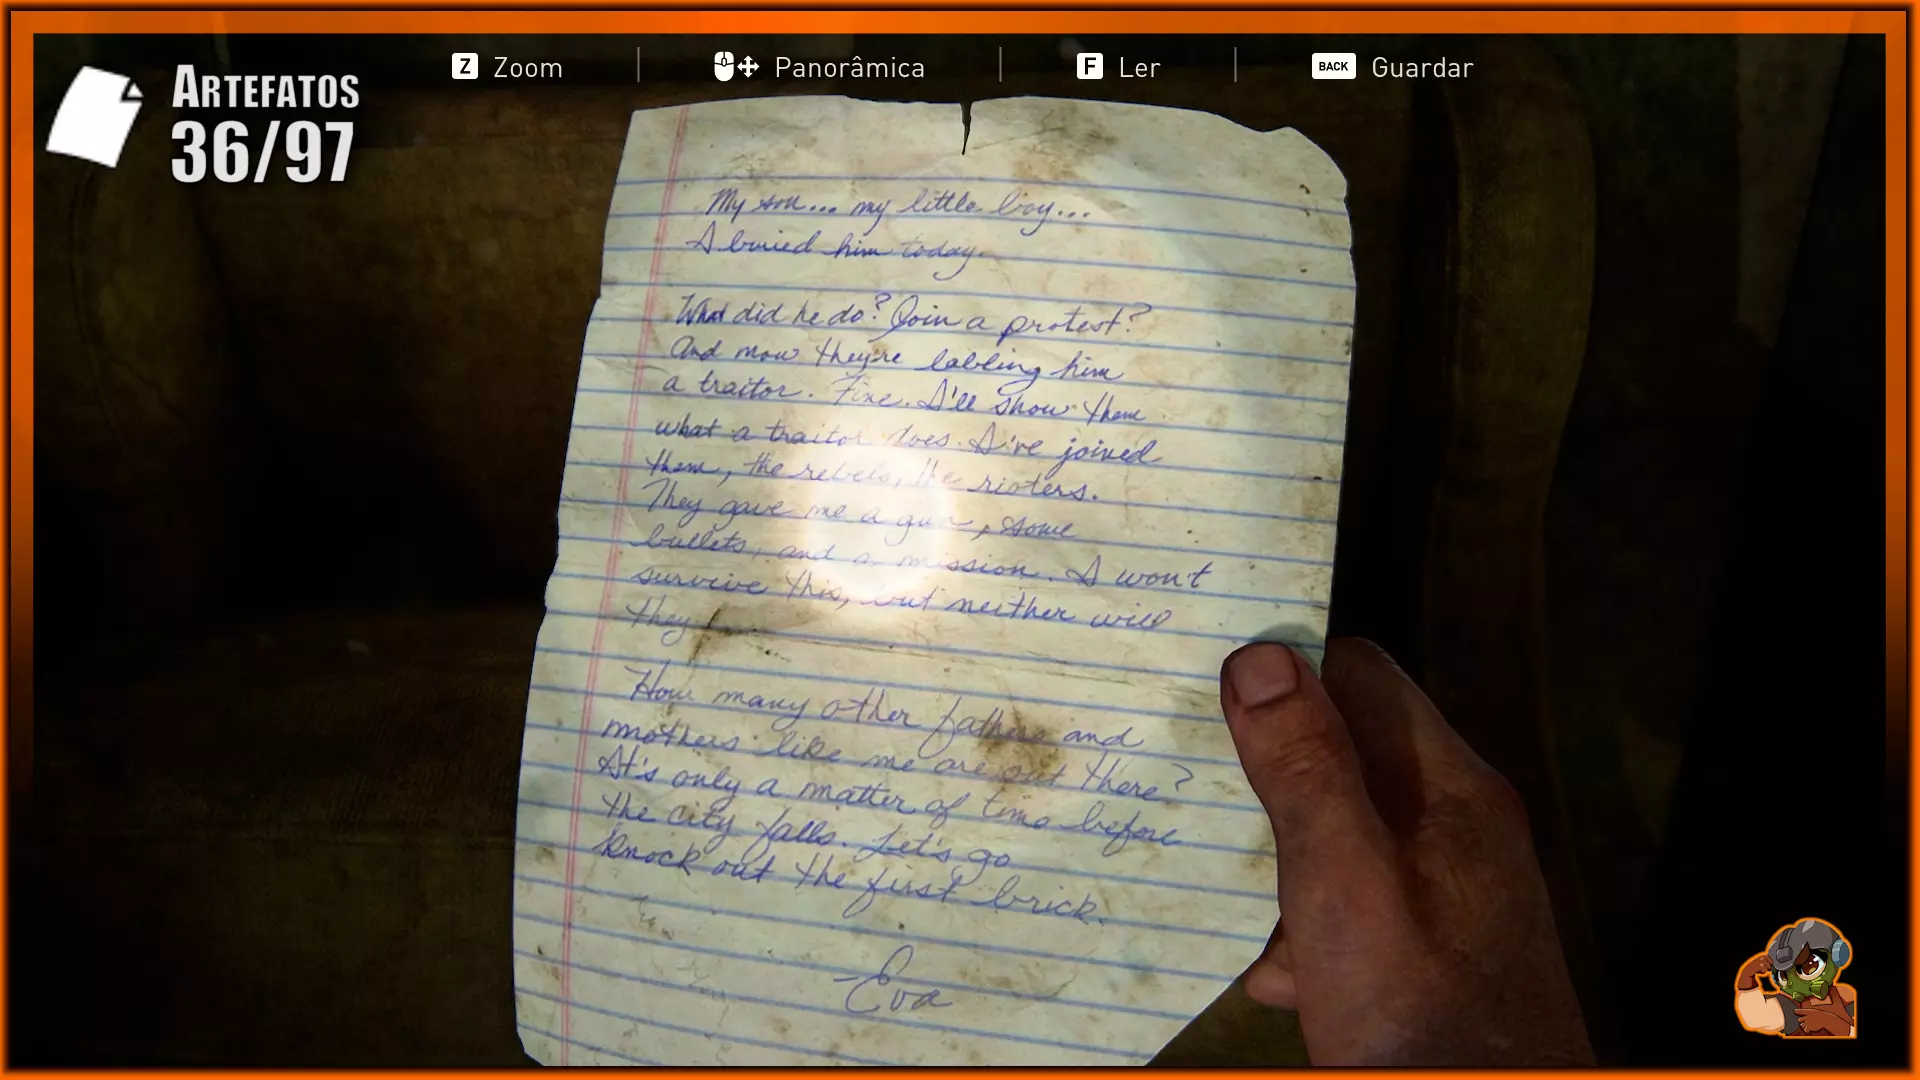 ARTEFATOS
36/97
Z Zoom
Panorâmica
F Ler
BACK Guardar
My son... my little boy...
I buried him today.
What did he do? Join a protest?
And now they're labling him
a traitor. Fine. I'll show them
what a traitor does. I've joined
them, the rebels, the rioters.
They gave me a gun, some
bullets, and a mission. I won't
survive this, but neither will
they
How many other fathers and
mothers like me are out there?
It's only a matter of time before
the city falls. Let's go
knock out the first brick.
-Eva